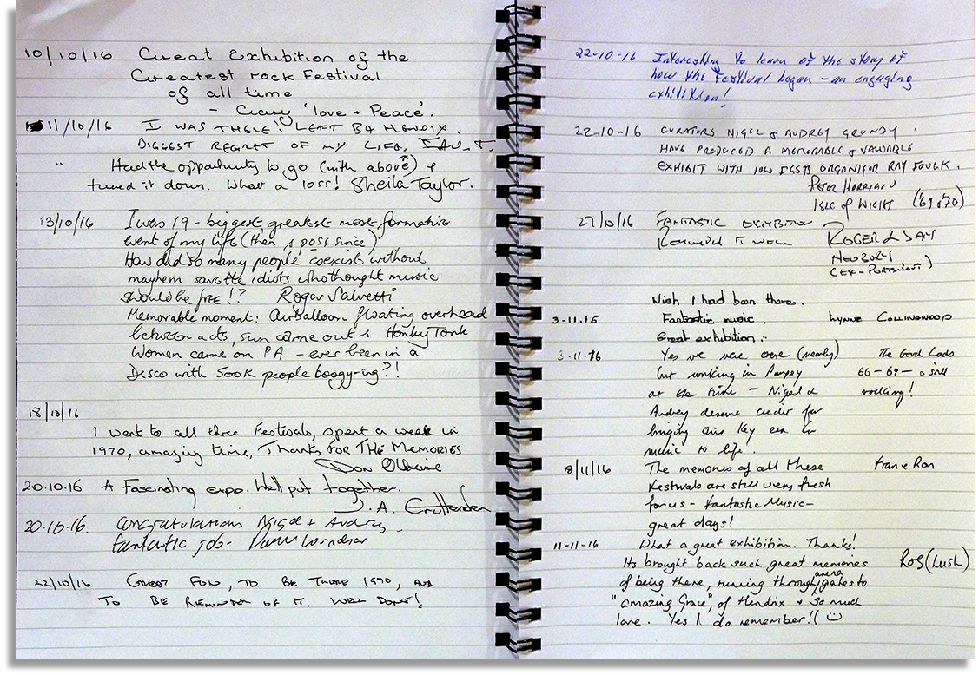 10/10/16 Great Exhibition of the
Greatest rock Festival
of all time
- Crazy 'love + Peace'.
11/10/16 I WAS THERE! LEFT B4 HENDRIX.
BIGGEST REGRET OF MY LIFE,
" Had the opportunity to go (with above) &
turned it down. What a loss! Sheila Taylor.
13/10/16 I was 19 - biggest greatest most formative
event of my life (then & poss since)
How did so many people coexist without
mayhem save the idiots who thought music
should be free!? Roger Salvetti
Memorable moment: Air balloon floating overhead
between acts, sun came out & Honky Tonk
Women came on PA - ever been in a
Disco with 500k people boogy-ing?!
18/10/16
I went to all three Festivals, spent a week in
1970, amazing time, Thanks for THE Memories
Don
20-10-16 A Fascinating expo. Well put together.
J.A. Cruttenden
20-10-16. Congratulations Nigel + Audrey.
fantastic job. Windsor
22/10/16 GREAT FUN, TO BE THERE 1970, AND
TO BE REMINDED OF IT. WELL DONE!
22-10-16 Interesting to learn of the story of
how the Festival began - an engaging
exhibition!
22-10-16 CURATORS NIGEL & AUDREY GRUNDY
HAVE PRODUCED A MEMORABLE & VALUABLE
EXHIBIT WITH IOW FESTS ORGANISER RAY FOULK.
PETER HARRIGAN
ISLE OF WIGHT (69 & 70)
27/10/16 FANTASTIC EXHIBITION -
REMEMBER IT WELL ROGER & JAY
NEWBURY
(EX-
Wish I had been there.
3-11.15 Fantastic music. Lynne Collingwood
Great exhibition..
3-11-16 Yes we were there (nearly) The Good Lads
but working in
at the time - Nigel & rocking!
Audrey deserve credit for
bringing this key era in
music to life.
8/11/16 The memories of all these Fran & Ron
Festivals are still very fresh
for us - Fantastic Music -
great days!
11-11-16 What a great exhibition. Thanks!
Its brought back such great memories Ros (Lush)
of being there, running through arena gates to
"amazing Grace", of Hendrix + so much
love. Yes I do remember!! ☺